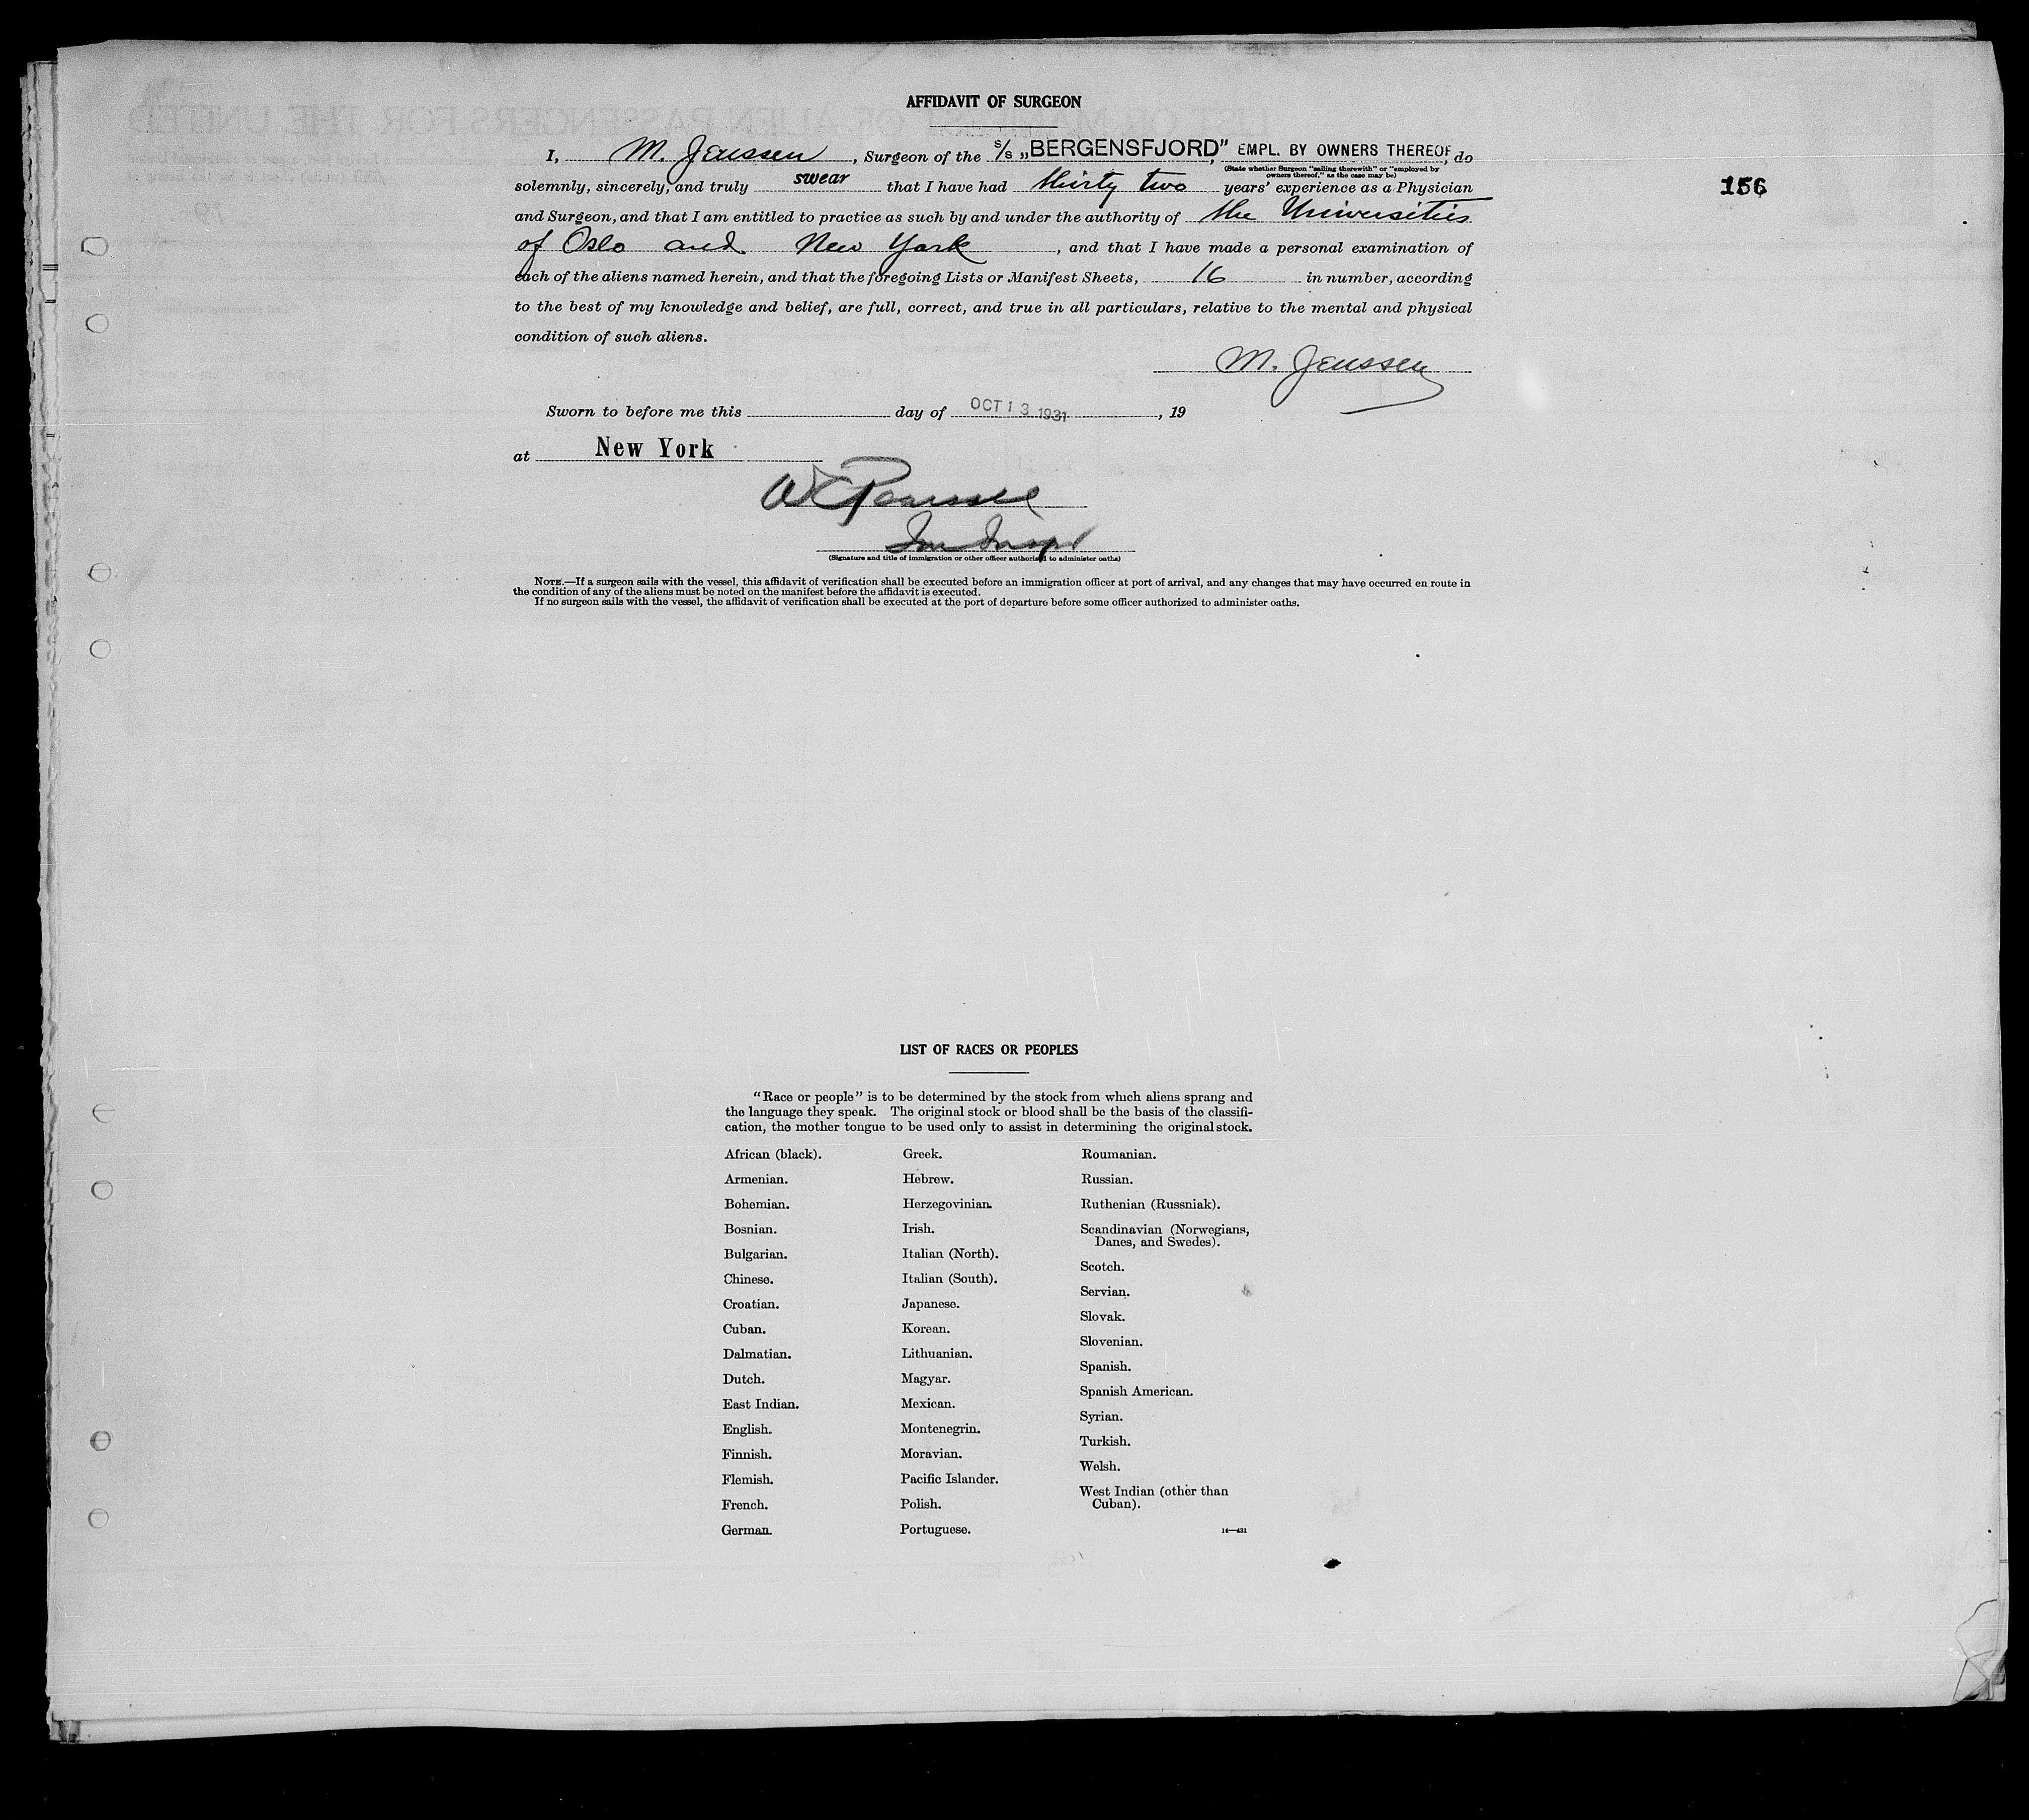 AFFIDAVIT OF SURGEON
I, M. Janssen, Surgeon of the s/s „BERGENSFJORD," EMPL. BY OWNERS THEREOF, do
(State whether Surgeon "sailing therewith" or "employed by
owners thereof," as the case may be)
156
solemnly, sincerely, and truly swear that I have had thirty two years' experience as a Physician
and Surgeon, and that I am entitled to practice as such by and under the authority of the Universities
of Oslo and New York, and that I have made a personal examination of
each of the aliens named herein, and that the foregoing Lists or Manifest Sheets, 16 in number, according
to the best of my knowledge and belief, are full, correct, and true in all particulars, relative to the mental and physical
condition of such aliens.
M. Janssen
Sworn to before me this day of OCT 13 1931, 19
at New York
(Signature and title of immigration or other officer authorized to administer oaths)
NOTE.—If a surgeon sails with the vessel, this affidavit of verification shall be executed before an immigration officer at port of arrival, and any changes that may have occurred en route in
the condition of any of the aliens must be noted on the manifest before the affidavit is executed.
If no surgeon sails with the vessel, the affidavit of verification shall be executed at the port of departure before some officer authorized to administer oaths.
LIST OF RACES OR PEOPLES
"Race or people" is to be determined by the stock from which aliens sprang and
the language they speak. The original stock or blood shall be the basis of the classifi-
cation, the mother tongue to be used only to assist in determining the original stock.
African (black).
Armenian.
Bohemian.
Bosnian.
Bulgarian.
Chinese.
Croatian.
Cuban.
Dalmatian.
Dutch.
East Indian.
English.
Finnish.
Flemish.
French.
German.
Greek.
Hebrew.
Herzegovinian.
Irish.
Italian (North).
Italian (South).
Japanese.
Korean.
Lithuanian.
Magyar.
Mexican.
Montenegrin.
Moravian.
Pacific Islander.
Polish.
Portuguese.
Roumanian.
Russian.
Ruthenian (Russniak).
Scandinavian (Norwegians,
Danes, and Swedes).
Scotch.
Servian.
Slovak.
Slovenian.
Spanish.
Spanish American.
Syrian.
Turkish.
Welsh.
West Indian (other than
Cuban).
14—431